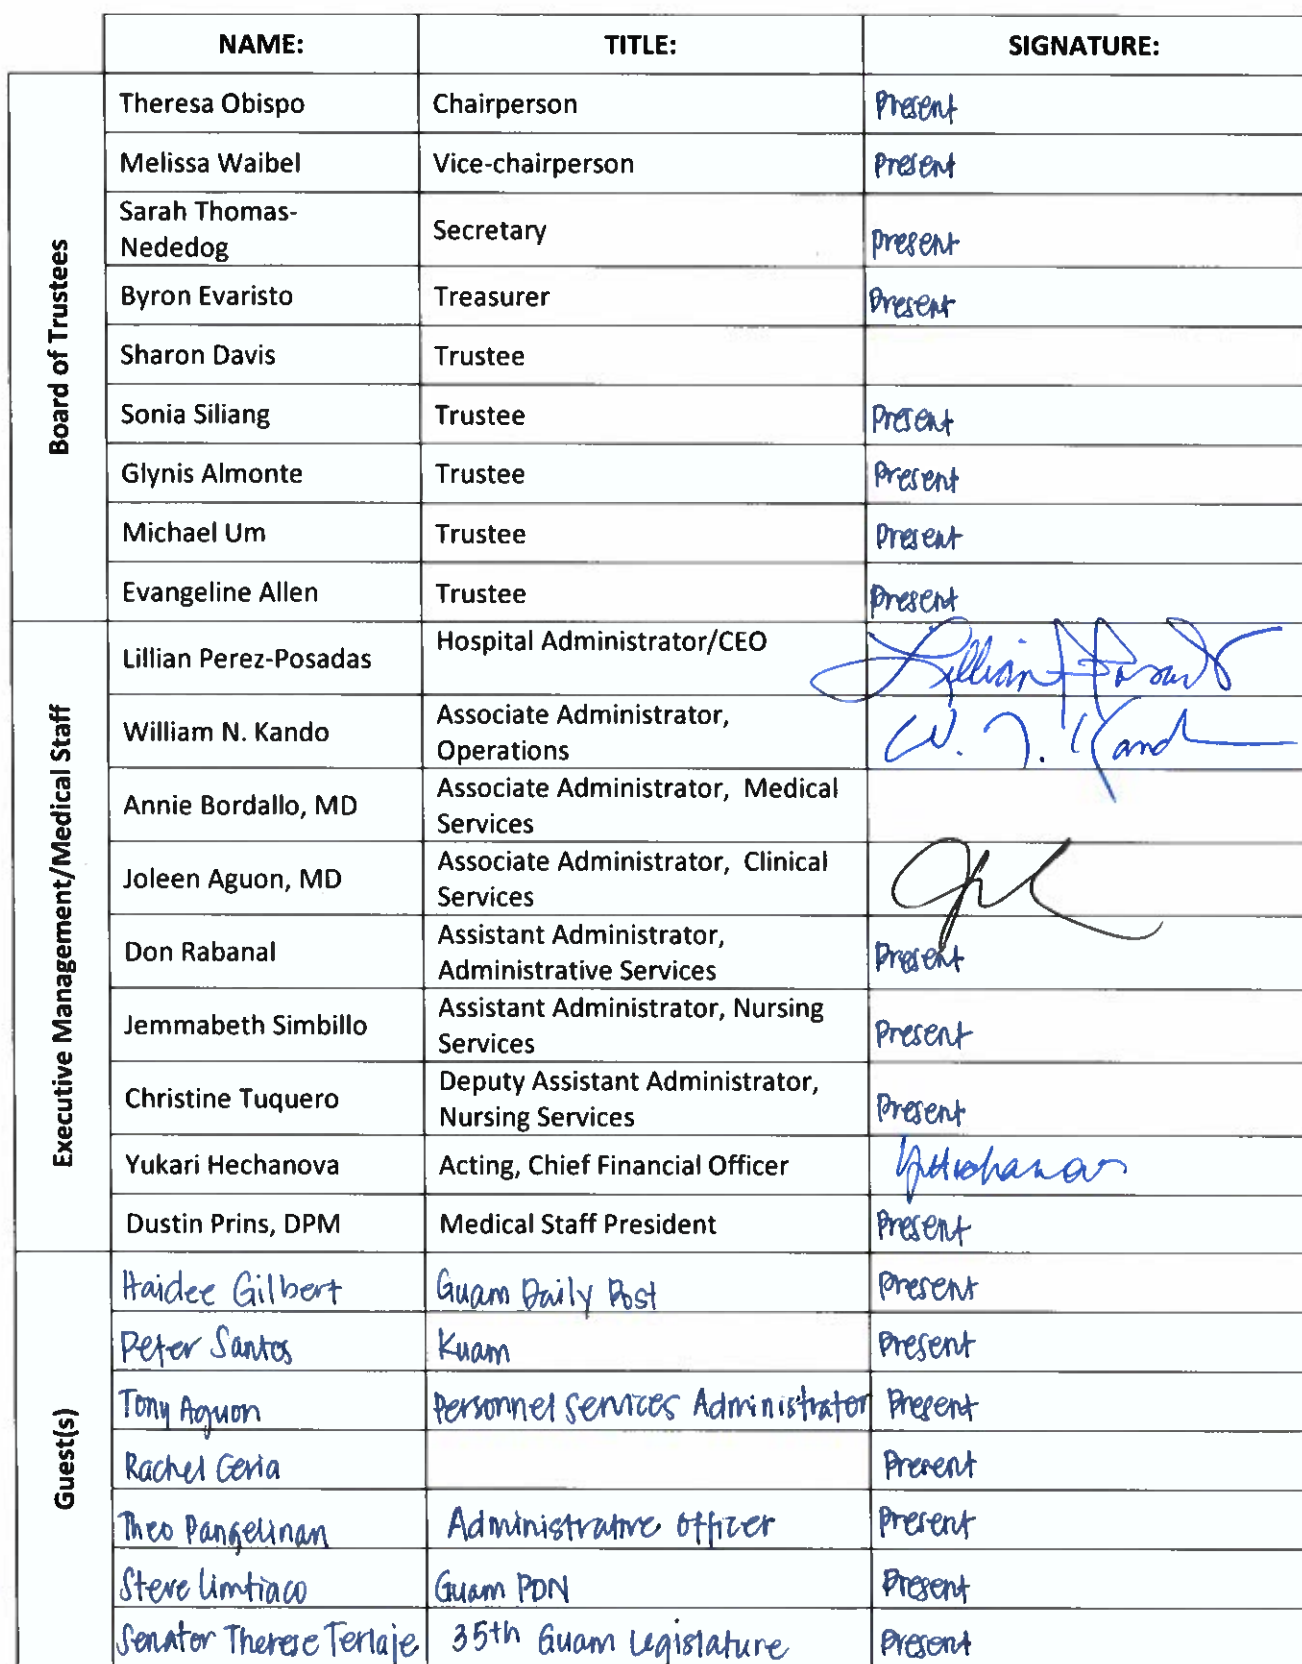 NAME: TITLE: SIGNATURE:
Board of Trustees
Theresa Obispo Chairperson Present
Melissa Waibel Vice-chairperson Present
Sarah Thomas-
Nededog Secretary Present
Byron Evaristo Treasurer Present
Sharon Davis Trustee
Sonia Siliang Trustee Present
Glynis Almonte Trustee Present
Michael Um Trustee Present
Evangeline Allen Trustee Present
Executive Management/Medical Staff
Lillian Perez-Posadas Hospital Administrator/CEO
William N. Kando Associate Administrator,
Operations W. N. Kand
Annie Bordallo, MD Associate Administrator, Medical
Services
Joleen Aguon, MD Associate Administrator, Clinical
Services
Don Rabanal Assistant Administrator,
Administrative Services Present
Jemmabeth Simbillo Assistant Administrator, Nursing
Services Present
Christine Tuquero Deputy Assistant Administrator,
Nursing Services Present
Yukari Hechanova Acting, Chief Financial Officer
Dustin Prins, DPM Medical Staff President Present
Guest(s)
Haidee Gilbert Guam Daily Post Present
Peter Santos Kuam Present
Tony Aguon Personnel Services Administrator Present
Rachel Present
Theo Pangelinan Administrative Officer Present
Steve Limtiaco Guam PDN Present
Senator Therese Terlaje 35th Guam Legislature Present